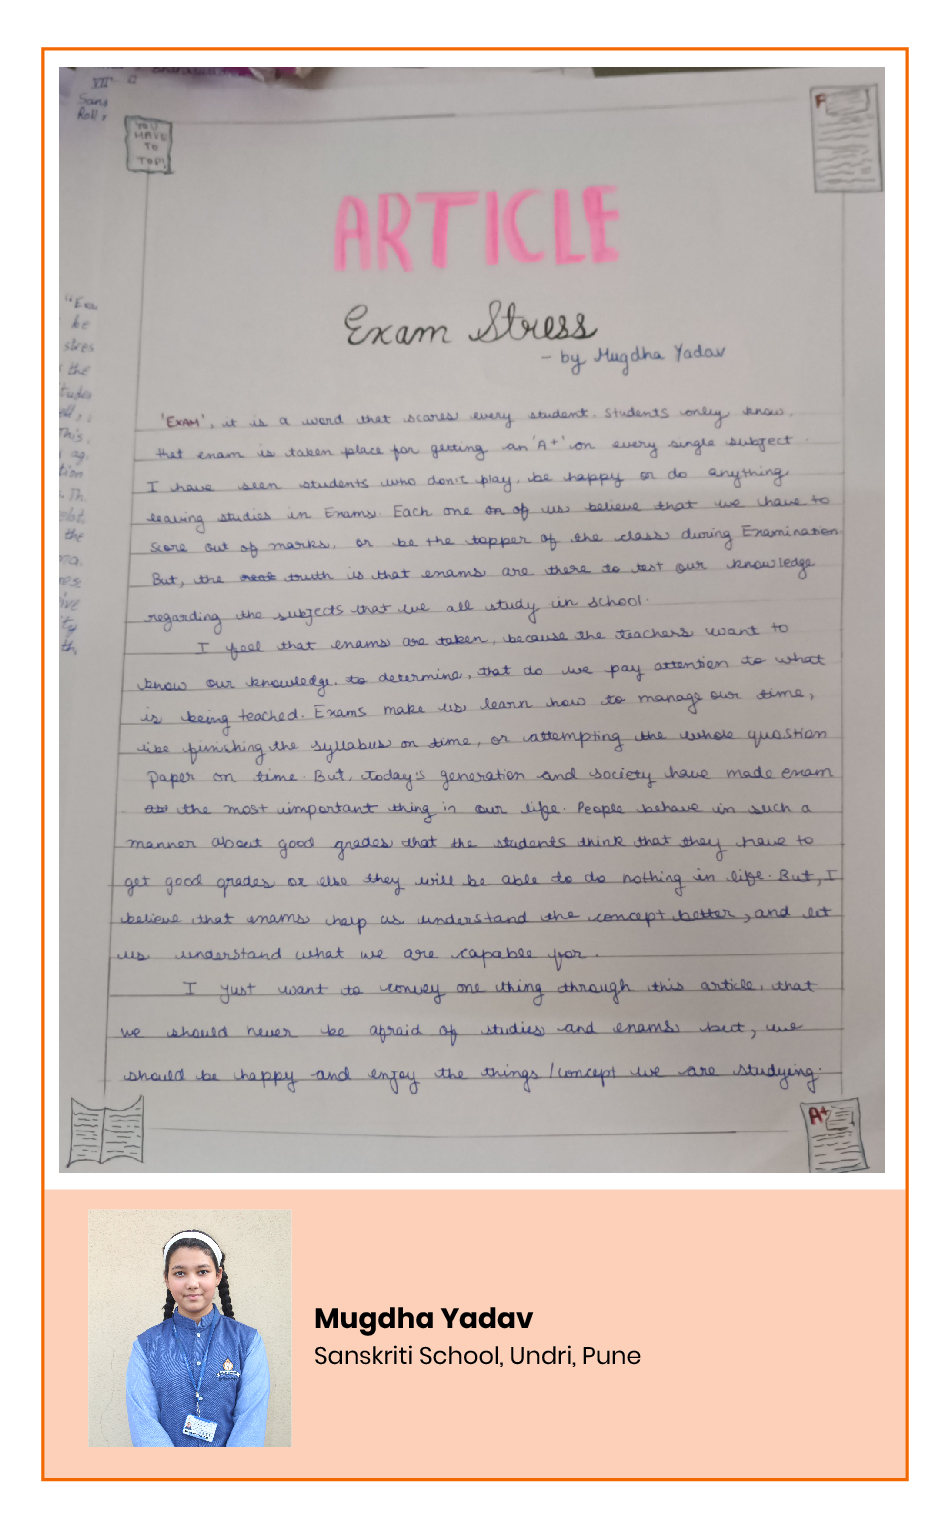 XII C
Sans
Roll
YOU
HAVE
TO
TOP!
F
ARTICLE
Exam Stress
- by Mugdha Yadav
"Exa
be
stres
the
This,
the
'EXAM', it is a word that scares every student. Students only know,
that exam is taken place for getting an 'A+' on every single subject.
I have seen students who don't play, be happy or do anything
leaving studies in Exams. Each one of us believe that we have to
score out of marks, or be the topper of the class during Examination.
But, the truth is that exams are there to test our knowledge
regarding the subjects that we all study in school.
I feel that exams are taken, because the teachers want to
know our knowledge, to determine, that do we pay attention to what
is being teached. Exams make us learn how to manage our time,
like finishing the syllabus on time, or attempting the whole question
paper on time. But, today's generation and society have made exam
the most important thing in our life. People behave in such a
manner about good grades that the students think that they have to
get good grades or else they will be able to do nothing in life. But, I
believe that exams help us understand the concept better, and let
us understand what we are capable for.
I just want to convey one thing through this article, that
we should never be afraid of studies and exams but, we
should be happy and enjoy the things/concept we are studying.
A+
Mugdha Yadav
Sanskriti School, Undri, Pune